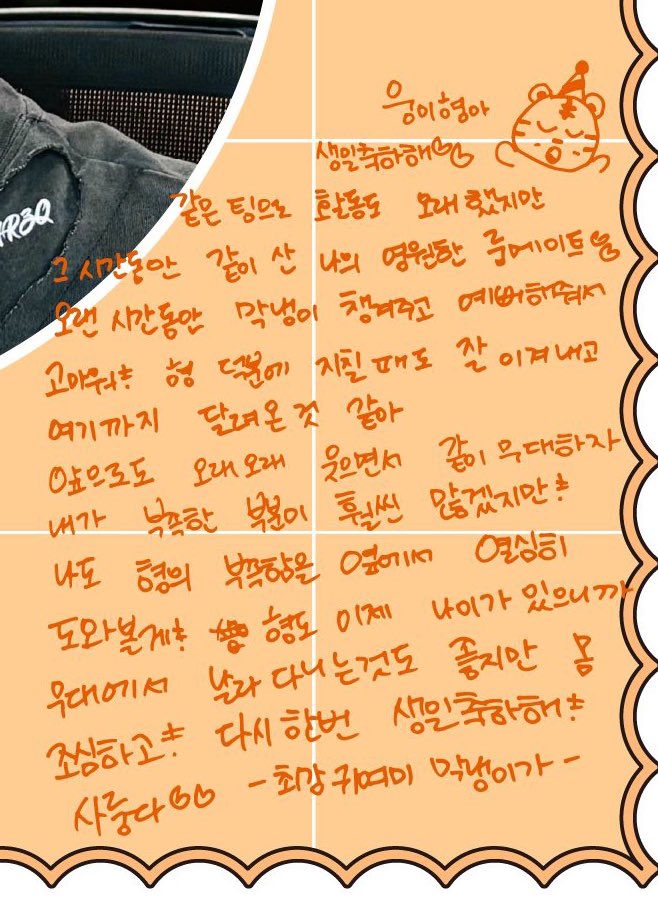 웅이형아
생일축하해
같은 팀으로 활동도 오래 했지만
그 시간동안 같이 산 나의 영원한 룸메이트
오랜 시간동안 막냉이 챙겨주고 예뻐해줘서
고마워! 형 덕분에 지칠 때도 잘 이겨내고
여기까지 달려온 것 같아
앞으로도 오래오래 웃으면서 같이 무대하자
내가 부족한 부분이 훨씬 많겠지만!
나도 형의 부족함을 옆에서 열심히
도와볼게! 형도 이제 나이가 있으니까
무대에서 날라 다니는것도 좋지만 몸
조심하고! 다시한번 생일축하해!
사룽다
-최강 귀여미 막냉이가-